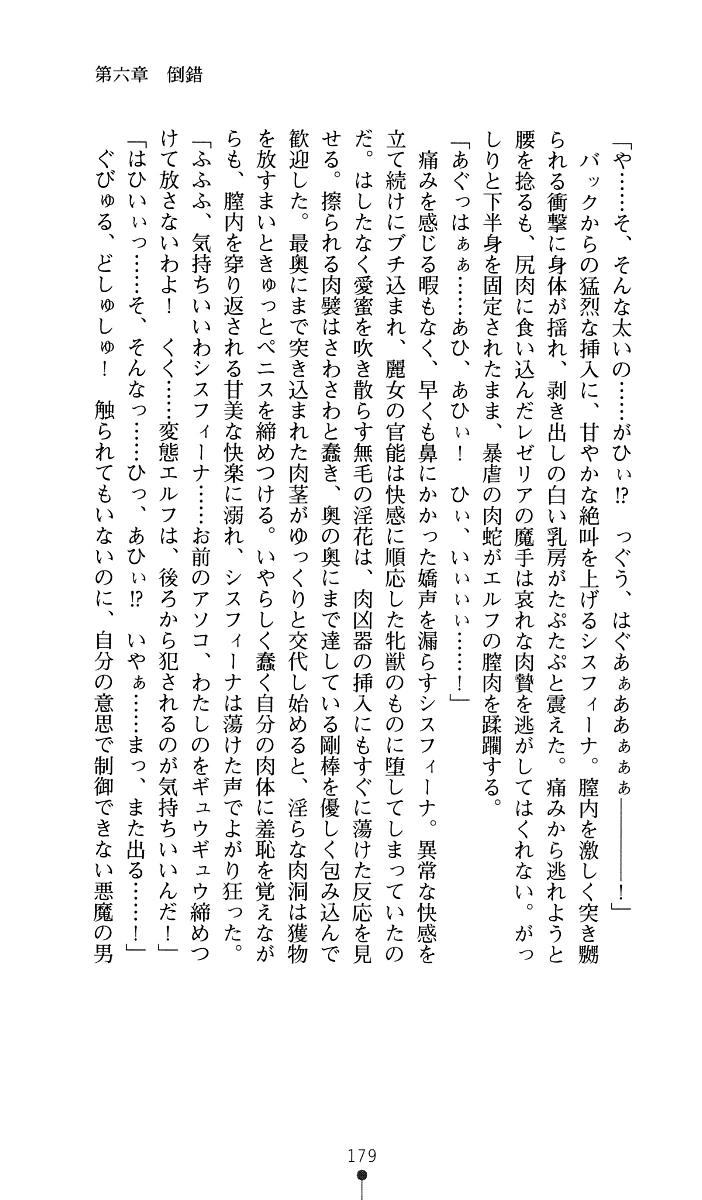 第六章　倒錯
「や……そ、そんな太いの……がひぃ!?　っぐう、はぐあぁああぁぁぁ――――！」
　バックからの猛烈な挿入に、甘やかな絶叫を上げるシスフィーナ。膣内を激しく突き嬲
られる衝撃に身体が揺れ、剥き出しの白い乳房がたぷたぷと震えた。痛みから逃れようと
腰を捻るも、尻肉に食い込んだレゼリアの魔手は哀れな肉贄を逃がしてはくれない。がっ
しりと下半身を固定されたまま、暴虐の肉蛇がエルフの膣肉を蹂躙する。
「あぐっはぁぁ……あひ、あひぃ！　ひぃ、いぃぃぃ……！」
　痛みを感じる暇もなく、早くも鼻にかかった嬌声を漏らすシスフィーナ。異常な快感を
立て続けにブチ込まれ、麗女の官能は快感に順応した牝獣のものに堕してしまっていたの
だ。はしたなく愛蜜を吹き散らす無毛の淫花は、肉凶器の挿入にもすぐに蕩けた反応を見
せる。擦られる肉襞はさわさわと蠢き、奥の奥にまで達している剛棒を優しく包み込んで
歓迎した。最奥にまで突き込まれた肉茎がゆっくりと交代し始めると、淫らな肉洞は獲物
を放すまいときゅっとペニスを締めつける。いやらしく蠢く自分の肉体に羞恥を覚えなが
らも、膣内を穿り返される甘美な快楽に溺れ、シスフィーナは蕩けた声でよがり狂った。
「ふふふ、気持ちいいわシスフィーナ……お前のアソコ、わたしのをギュウギュウ締めつ
けて放さないわよ！　くく……変態エルフは、後ろから犯されるのが気持ちいいんだ！」
「はひいぃっ……そ、そんなっ……ひっ、あひぃ!?　いやぁ……まっ、また出る……！」
　ぐびゅる、どしゅしゅ！　触られてもいないのに、自分の意思で制御できない悪魔の男
179